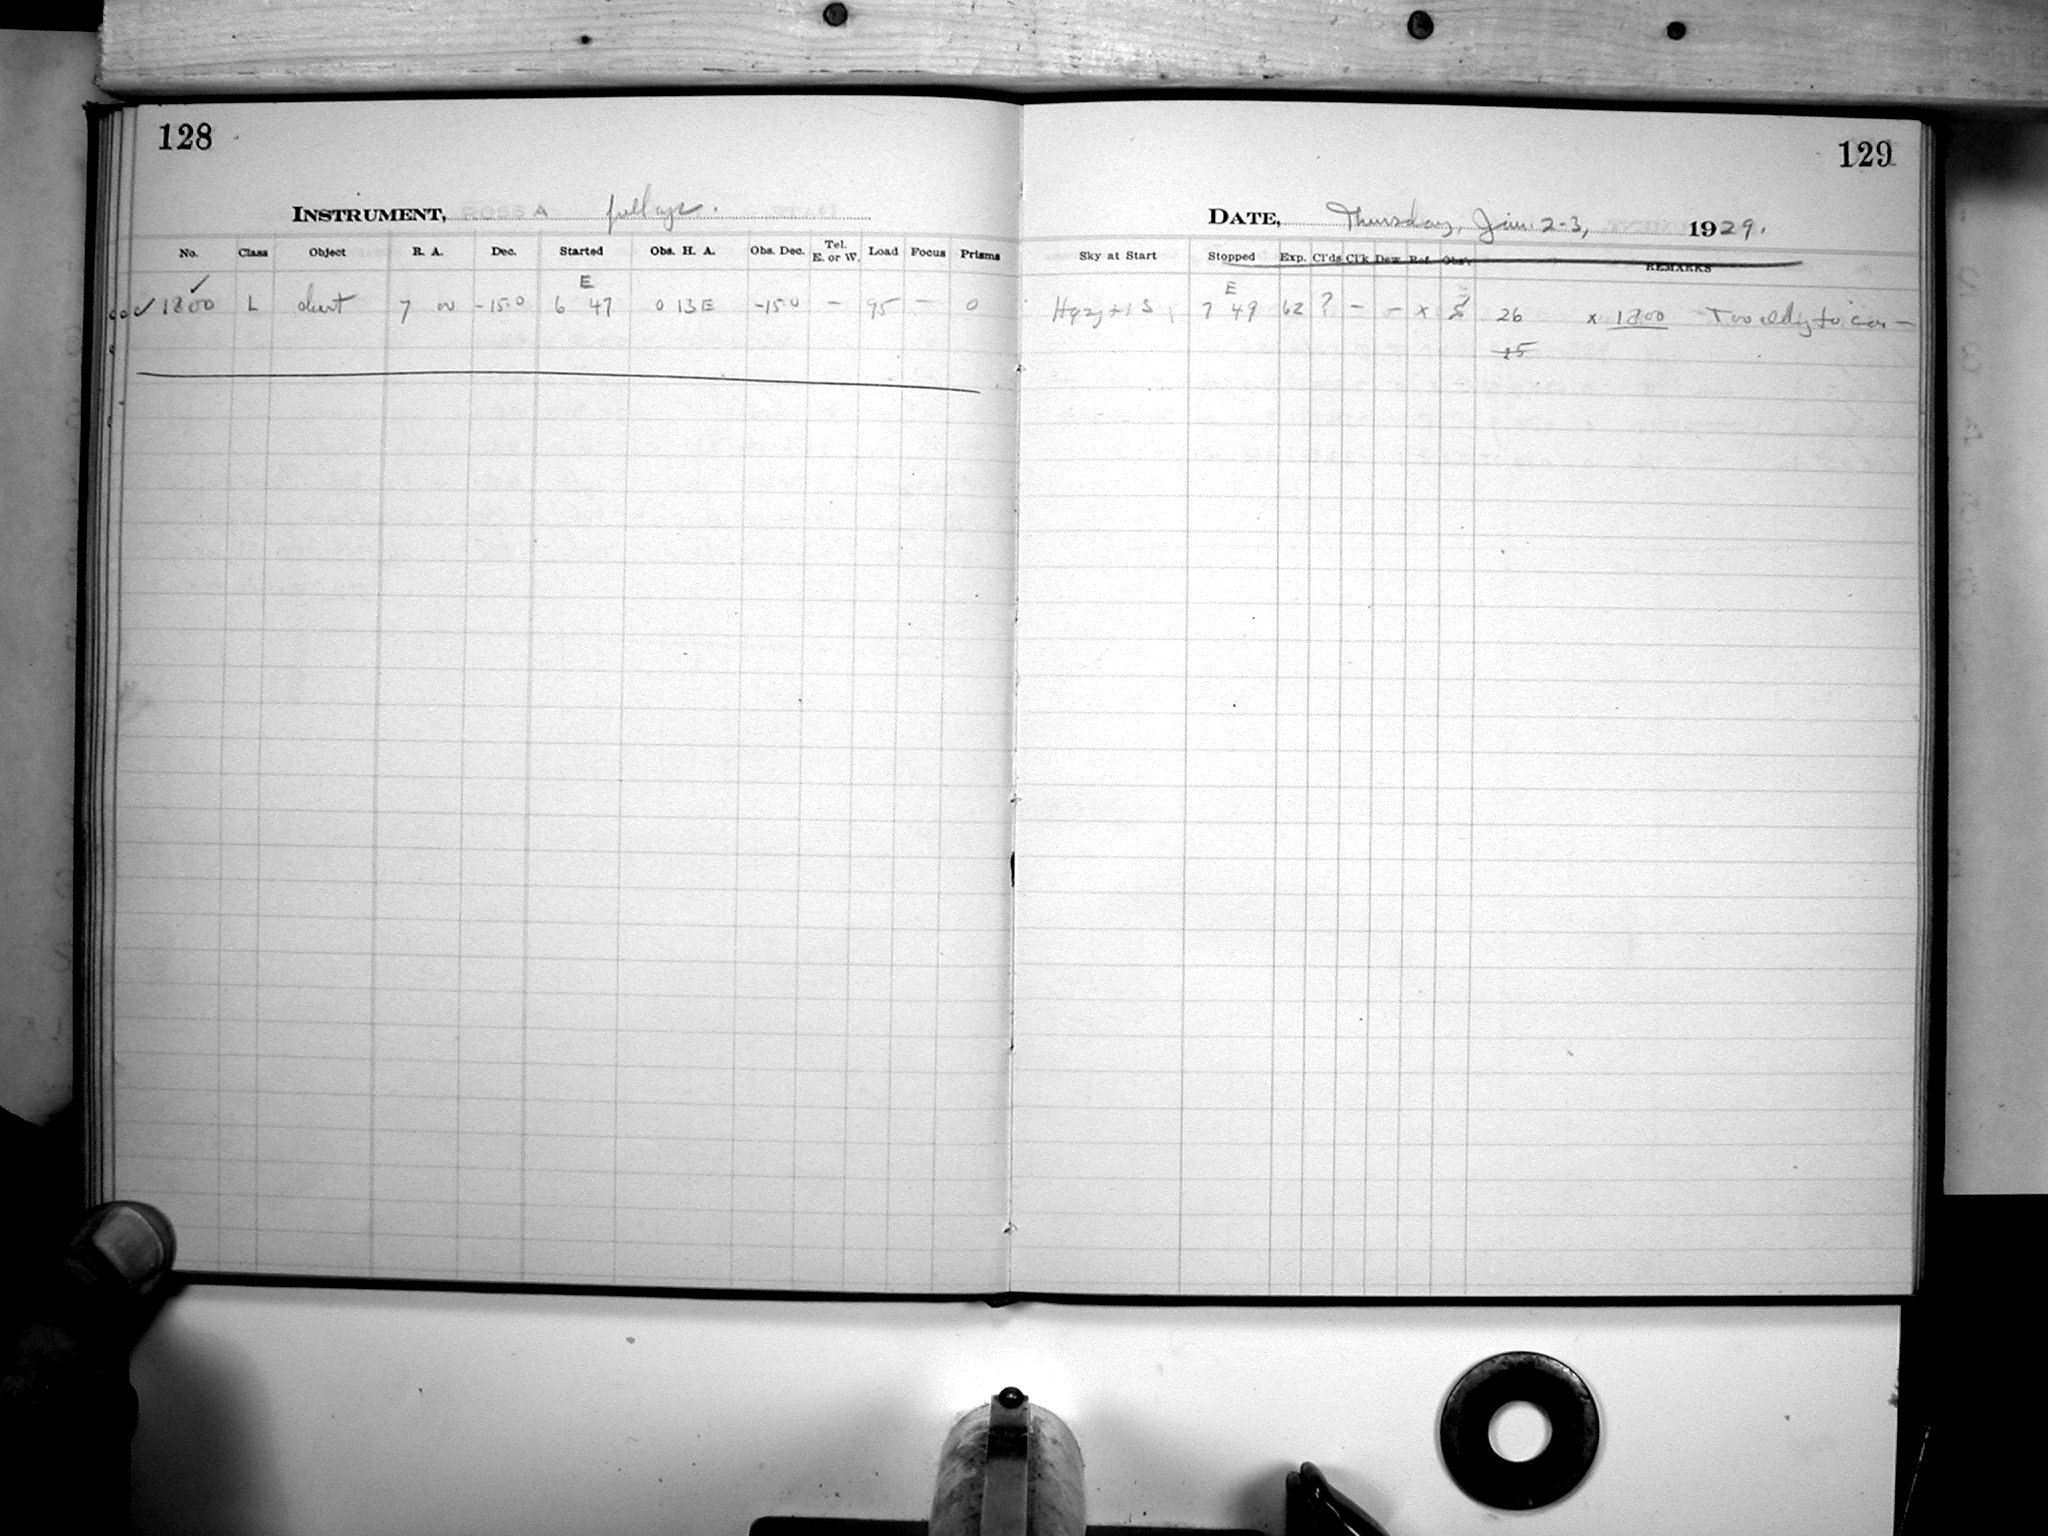 128
INSTRUMENT, ROSS A full ap.
No. Class Object R. A. Dec. Started Obs. H. A. Obs. Dec. Tel. E. or W. Load Focus Prisms
E
✓ 1800 L chart 7 00 -15.0 6 47 0 13 E -15.0 - 95 - 0
129
DATE, Thursday, Jan. 2-3, 1929.
Sky at Start Stopped Exp. Cl'ds Cl'k Dew Ref. Obs'r. REMARKS
E
Hazy 7 49 62 ? - - x 26 x 1800
15